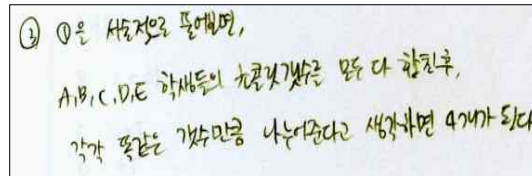 ③ ①을 서술적으로 풀어보면,
A,B,C,D,E 학생들의 초콜릿갯수를 모두 다 합친후,
각각 똑같은 갯수만큼 나누어준다고 생각하면 4개가 된다